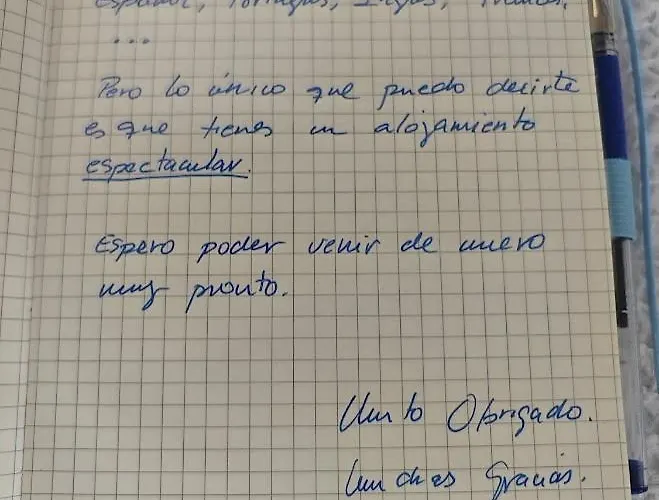 Español, Portugués, Inglés, Francés,
...
Pero lo único que puedo decirte
es que tienes un alojamiento
espectacular.
Espero poder venir de nuevo
muy pronto.
Muito Obrigado.
Muchas Gracias.